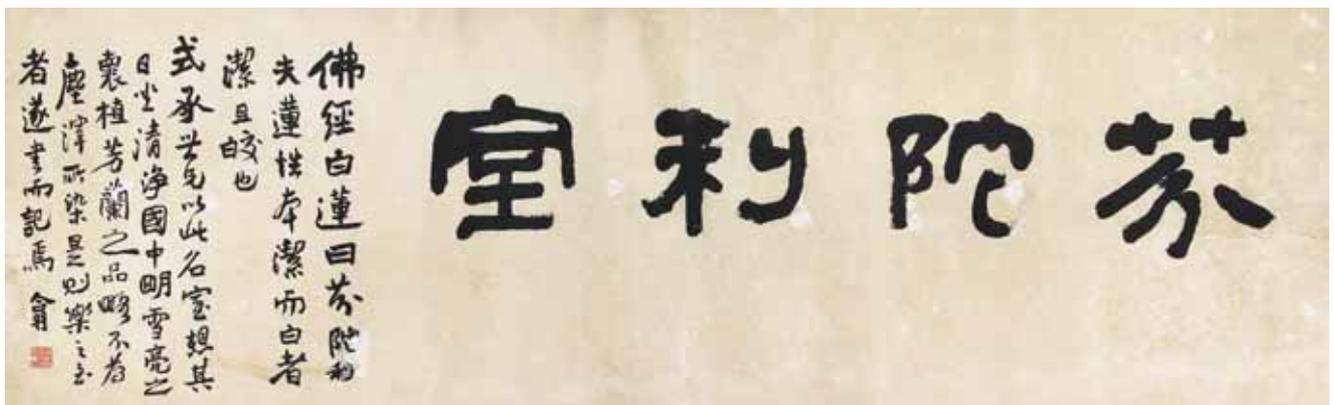 芬陀利室
佛經白蓮曰芬陀利
夫蓮性本潔而白者
潔且皎也
式承世兄以此名室想其
日坐清淨國中明雪亮之
植芳蘭之品略不為
塵滓所染是則樂之至
者遂書而記焉